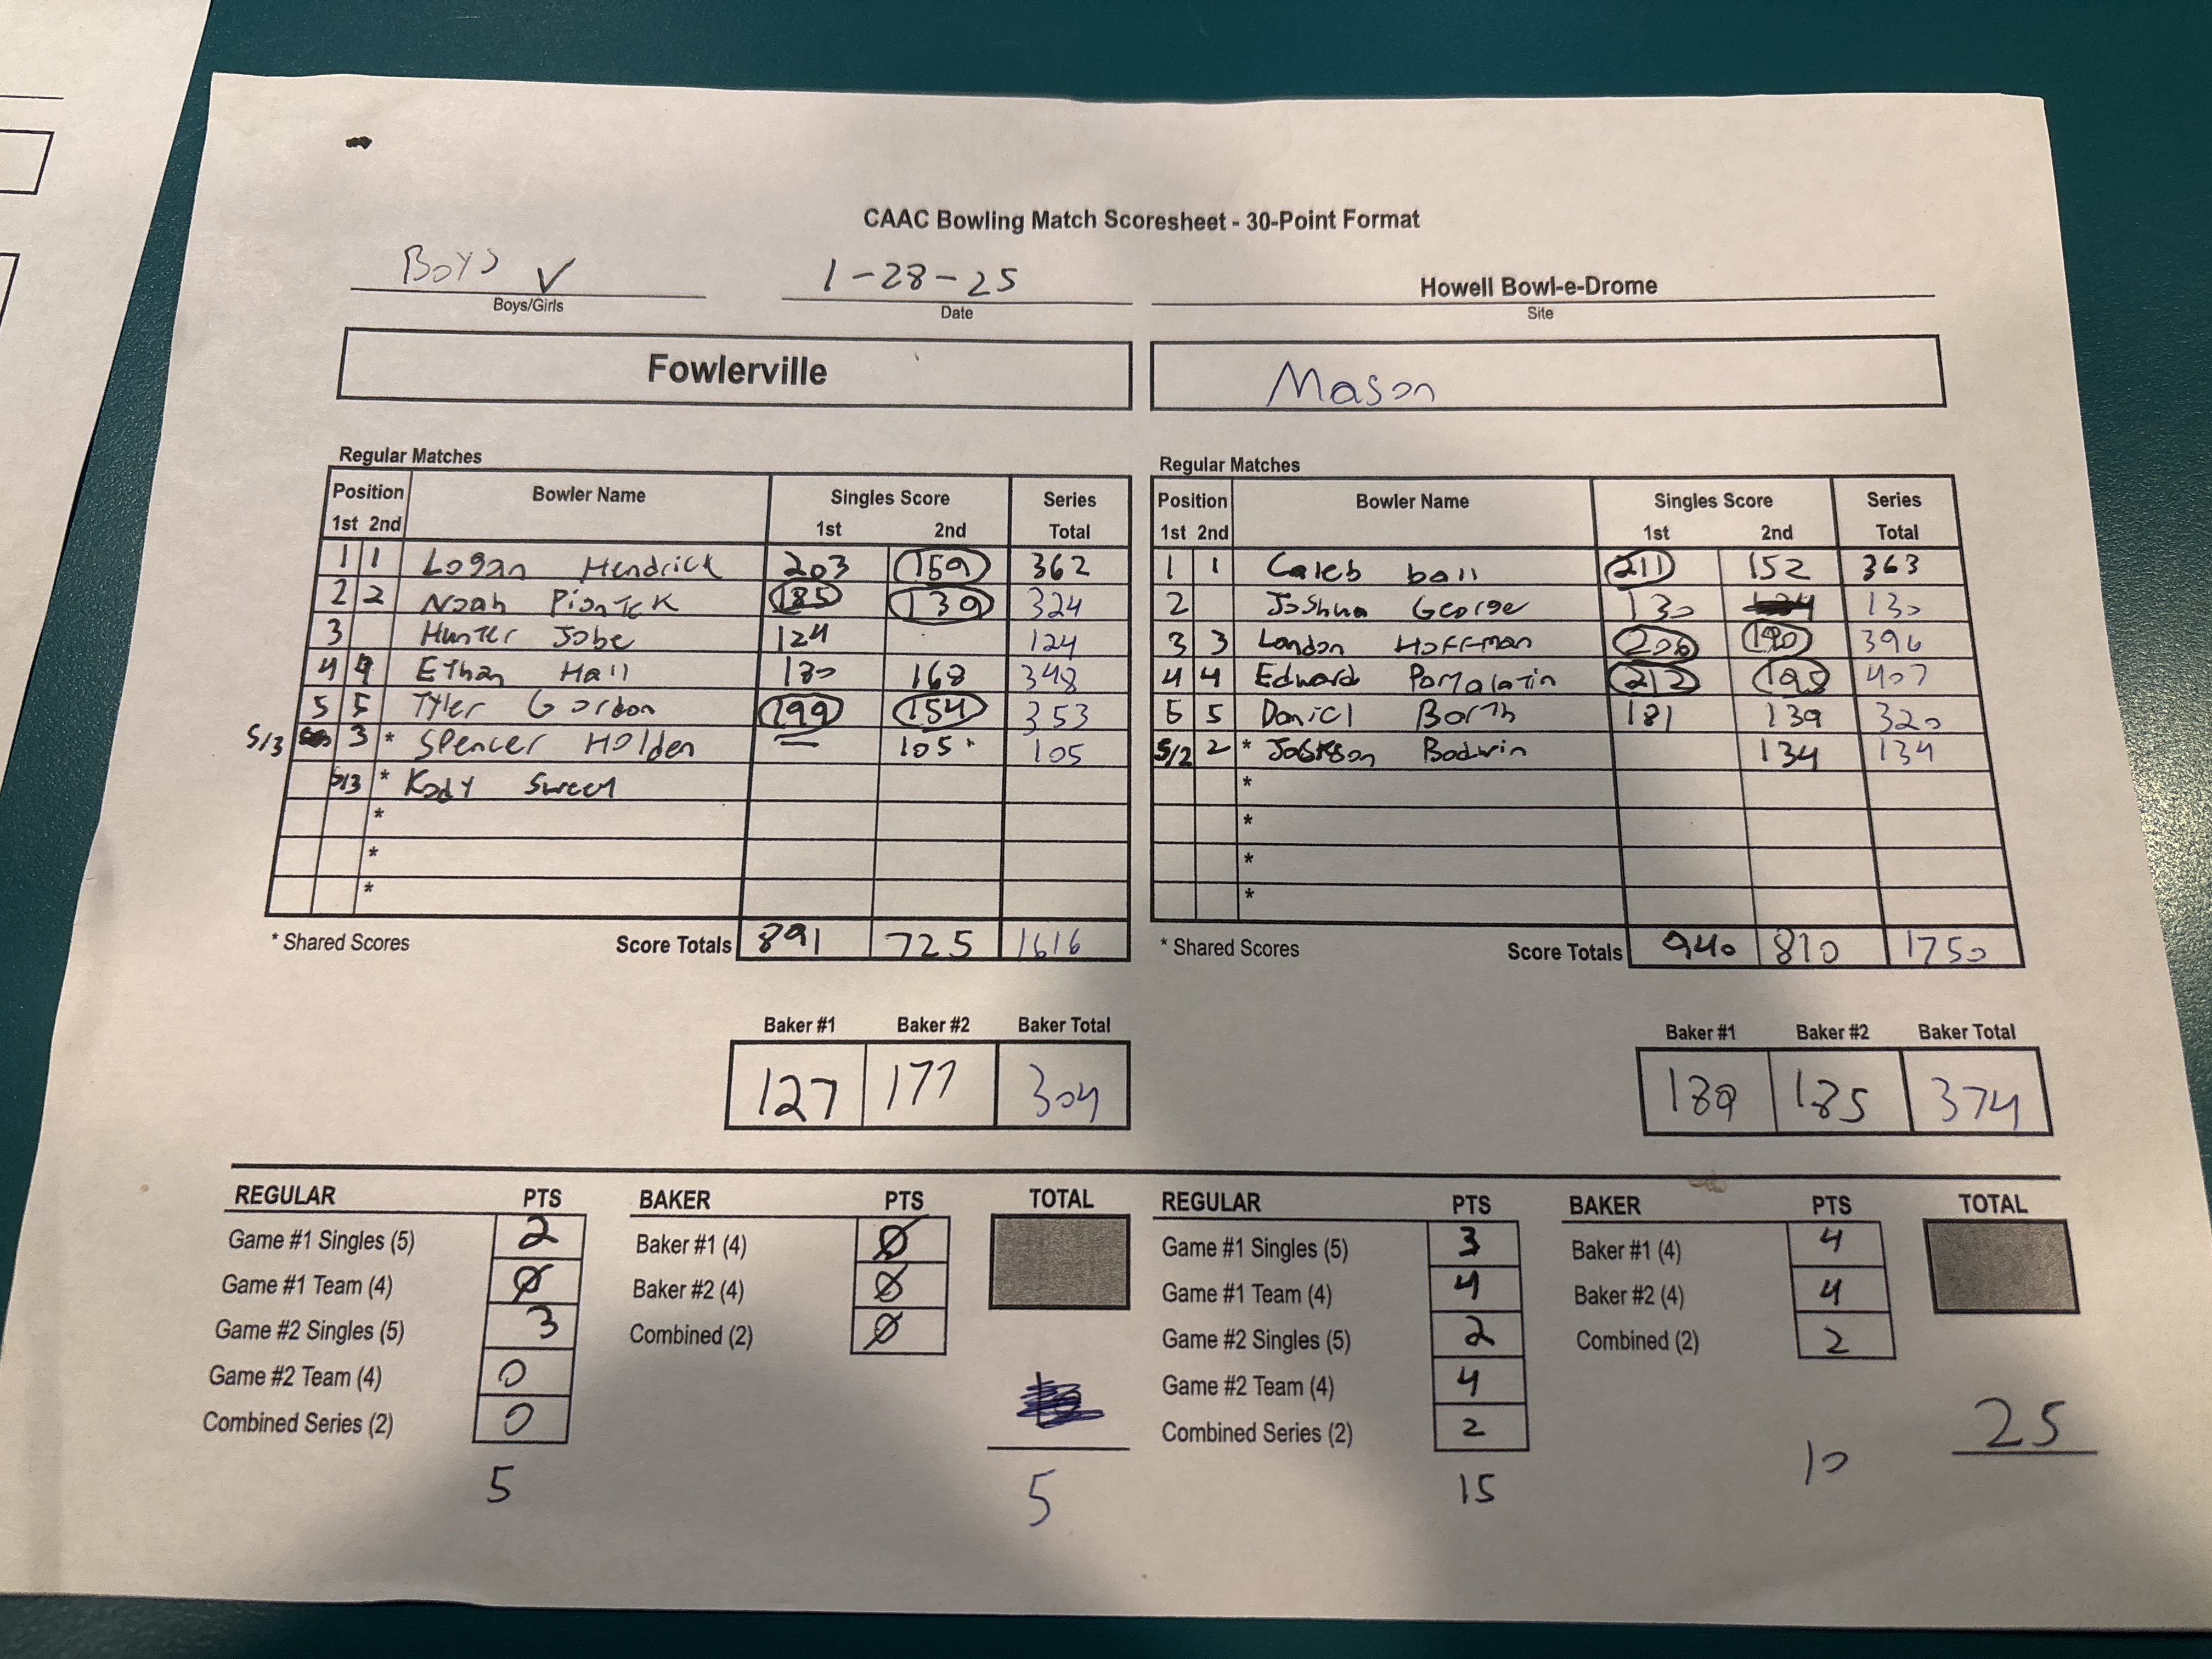 CAAC Bowling Match Scoresheet - 30-Point Format
Boys ✓ 1-28-25 Howell Bowl-e-Drome
Boys/Girls Date Site
Fowlerville Mason
Regular Matches
Position Bowler Name Singles Score Series
1st 2nd 1st 2nd Total
1 1 Logan Hendrick 203 159 362
2 2 Noah Piontek 185 139 324
3 Hunter Jobe 124 124
4 4 Ethan Hall 180 168 348
5 5 Tyler Gordon 199 154 353
S/3 3 * Spencer Holden — 105 105
S/3 * Kody Sweet
*
*
*
* Shared Scores Score Totals 891 725 1616
Regular Matches
Position Bowler Name Singles Score Series
1st 2nd 1st 2nd Total
1 1 Caleb ball 211 152 363
2 Joshua George 130 130
3 3 Landon Hoffman 206 190 396
4 4 Edward 212 195 407
5 5 Daniel Borth 181 139 320
S/2 2 * Bodwin 134 134
*
*
*
*
* Shared Scores Score Totals 940 810 1750
Baker #1 Baker #2 Baker Total
127 177 304
Baker #1 Baker #2 Baker Total
189 185 374
REGULAR PTS BAKER PTS TOTAL
Game #1 Singles (5) 2 Baker #1 (4) Ø
Game #1 Team (4) Ø Baker #2 (4) Ø
Game #2 Singles (5) 3 Combined (2) Ø
Game #2 Team (4) 0
Combined Series (2) 0
5 5
REGULAR PTS BAKER PTS TOTAL
Game #1 Singles (5) 3 Baker #1 (4) 4
Game #1 Team (4) 4 Baker #2 (4) 4
Game #2 Singles (5) 2 Combined (2) 2
Game #2 Team (4) 4
Combined Series (2) 2
15 10 25